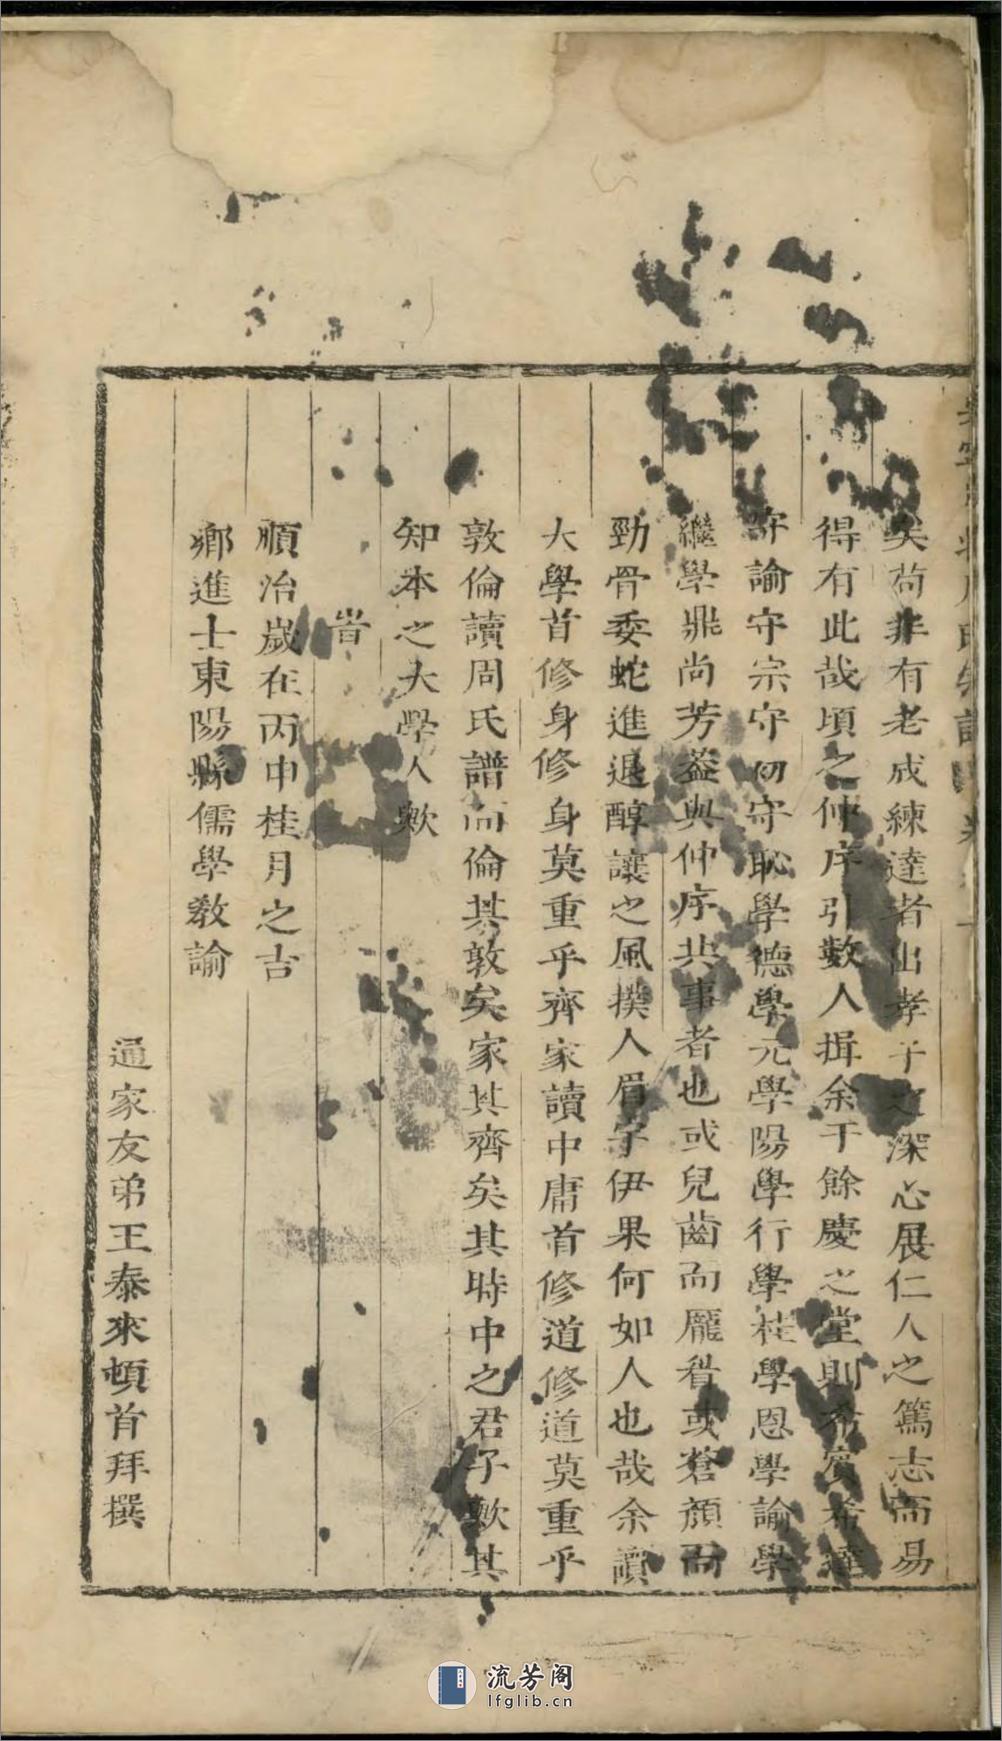 矣苟非有老成練達者出孝子之深心展仁人之篤志而易
得有此哉頃之仲序引數人揖余于餘慶之堂則希賓希達
守諭守宗守初守恥學德學元學陽學行學桂學恩學諭學
繼學鼎尚芳蓋與仲序共事者也或兒齒而龐眉或蒼顏而
勁骨委蛇進退醇讓之風撲人眉宇伊果何如人也哉余讀
大學首修身修身莫重乎齊家讀中庸首修道修道莫重乎
敦倫讀周氏譜而倫其敦矣家其齊矣其時中之君子歟其
知本之大學人歟
旹
順治歲在丙申桂月之吉
鄉進士東陽縣儒學教諭
通家友弟王泰來頓首拜撰
流芳阁
lfglib.cn